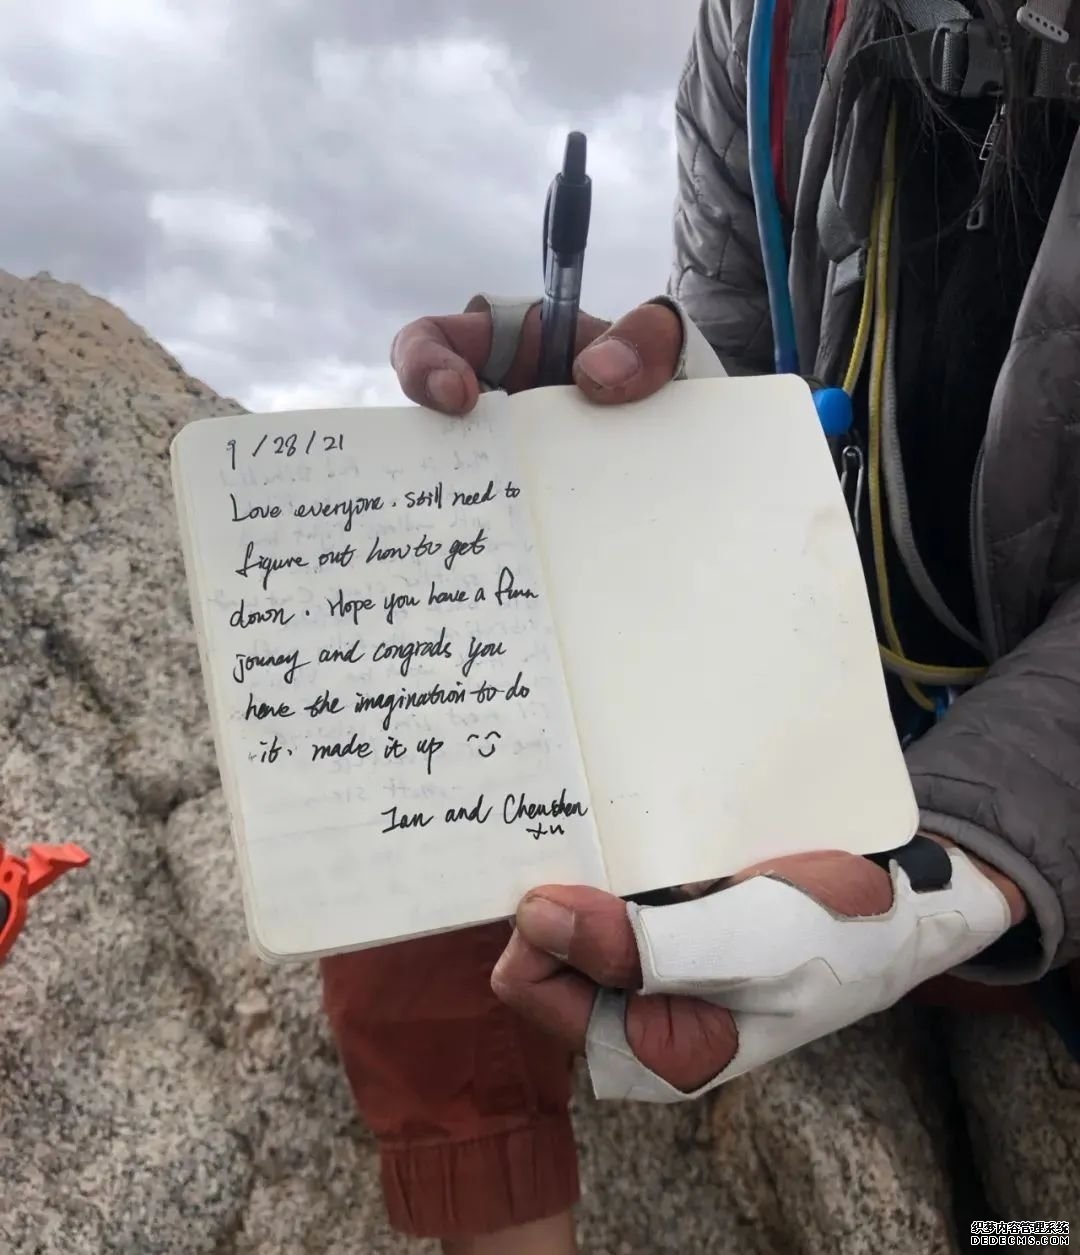 9/28/21
Love everyone. Still need to
figure out how to get
down. Hope you have a funn
jouney and congrads you
have the imagination to do
it. made it up
Ian and Chenshen
Xu
织梦内容管理系统
DEDECMS.COM